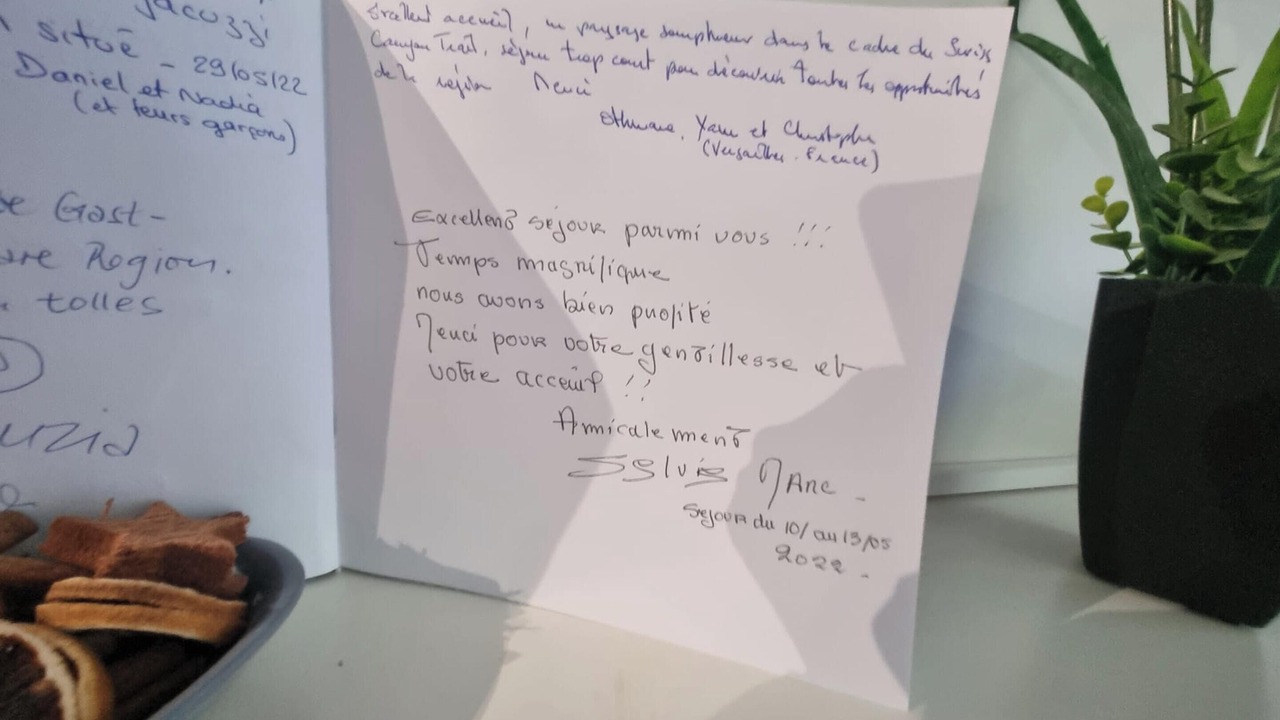 Jacuzzi
situé - 29/05/22
Daniel et Nadia
(et leurs garçons)
Gast-
Region.
tolles
Excellent accueil, un paysage somptueux dans le cadre du Swiss
Canyon Trail, séjour trop court pour découvrir toutes les opportunités
de la région Merci
Yann et Christophe
(Versailles - France)
Excellent séjour parmi vous !!!
Temps magnifique
nous avons bien profité
Merci pour votre gentillesse et
votre acceuil !!
Amicalement
Sylvie Marc -
Sejour du 10/ au 13/05
2022 -